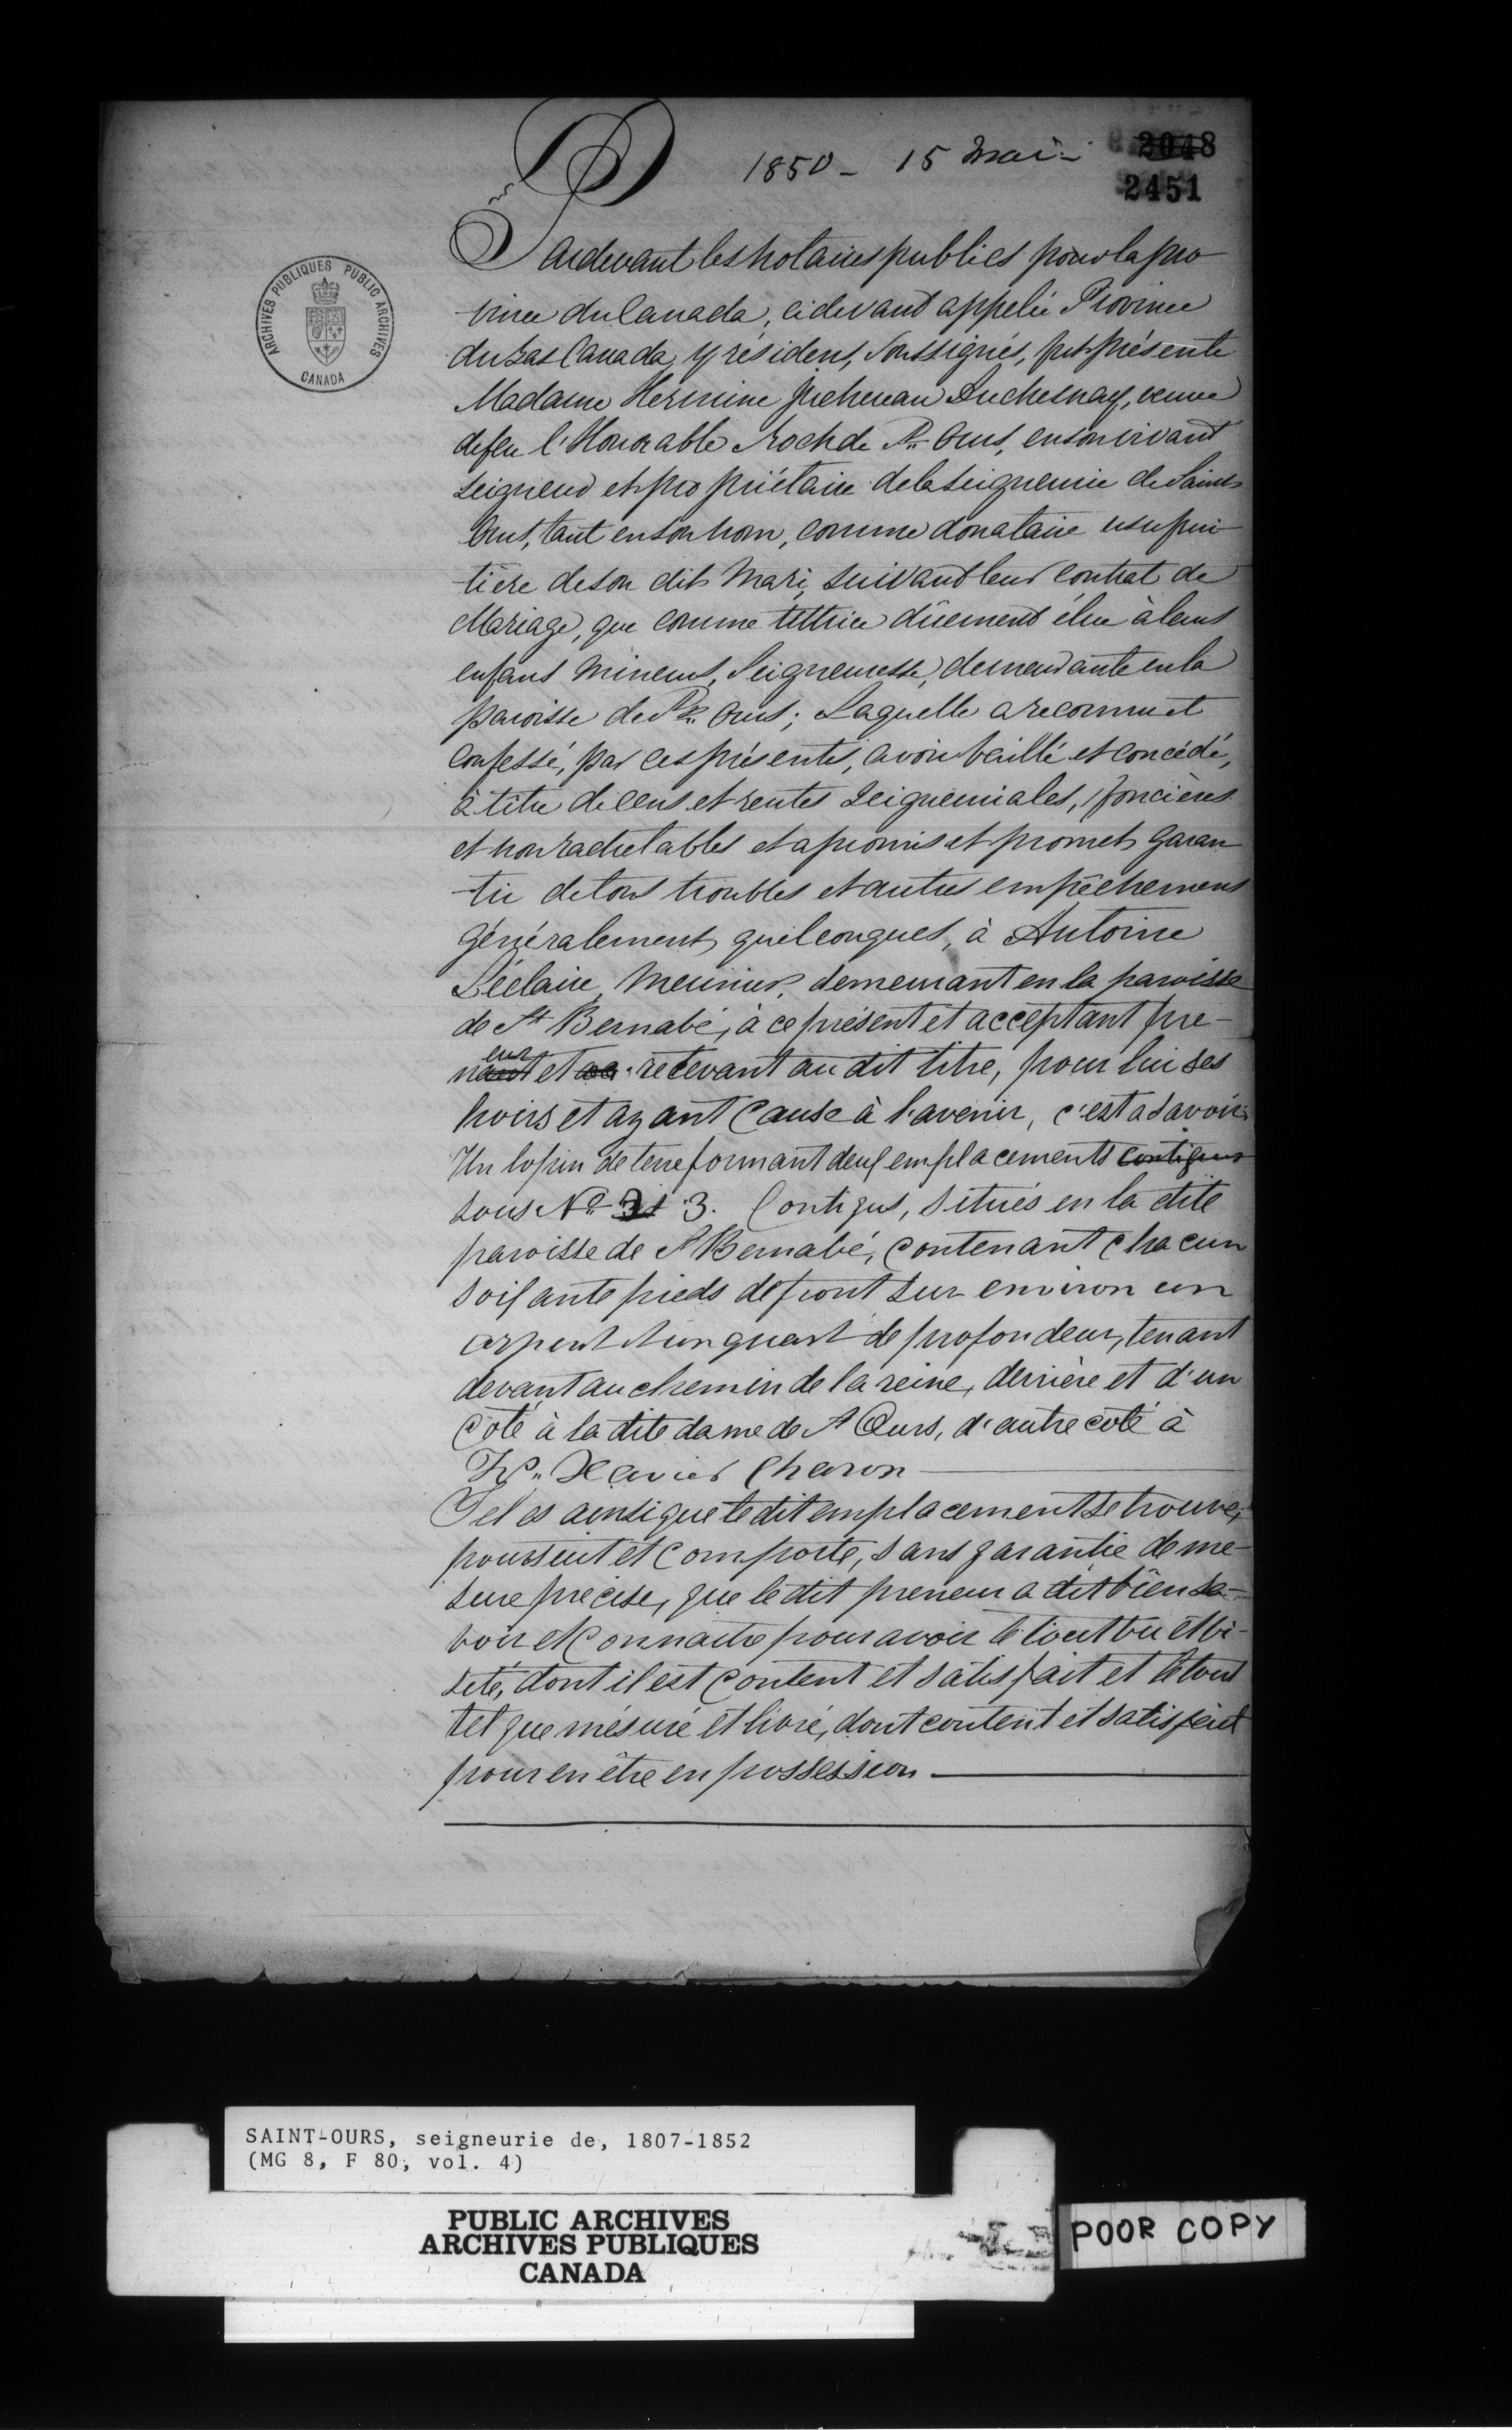 1850 - 15 Mai -
2048
2451
ARCHIVES PUBLIQUES PUBLIC ARCHIVES
CANADA
Pardevant les Notaires publics pour la pro
vince du Canada, cidevant appelée Province
du bas Canada, y résident, Soussignés, fut présente
Madame Hermine Juchereau Duchesnay, veuve
de feu l'Honorable Roch de St. Ours, en son vivant
Seigneur et propriétaire de la Seigneurie de Saint
Ours, tant en son nom, comme donataire usufrui
tière de son dit Mari, suivant leur contrat de
Mariage, que comme tuttrice dûement élue à leurs
enfans Mineurs, Seigneuresse, demeurante en la
paroisse de St. Ours; Laquelle a reconnu et
confessé, par ces présentes, avoir baillé et concédé,
à titre de cens et rentes Seigneuriales, foncières
et non rachetables et a promis et promet garan
tir de tous troubles et autres empêchemens
généralement quelconques, à Antoine
Léclaire, Meunier, demeurant en la paroisse
de St Bernabé, à ce présent et acceptant pre-
eur
nant et recevant au dit titre, pour lui ses
hoirs et ayant cause à l'avenir, c'est a savoir
Un lopin de terre formant deux emplacements contigus
sous No 3. Contigus, situés en la dite
paroisse de St Bernabé, contenant chacun
soixante pieds de front sur environ un
arpent et un quart de profondeur, tenant
devant au chemin de la reine, derrière et d'un
côté à la dite dame de St Ours, d'autre côté à
Frs. Xavier Charon
Tel es ainsi que le dit emplacement se trouve,
poursuit et comporte, sans garantie de me-
sure précise, que le dit preneur a dit bien sa-
voir et connaitre pour avoir le tout vu et vi-
sité, dont il est content et satisfait et le tout
tel que mésuré et livré, dont content et satisfait
pour en être en possession
SAINT-OURS, seigneurie de, 1807-1852
(MG 8, F 80, vol. 4)
PUBLIC ARCHIVES
ARCHIVES PUBLIQUES
CANADA
POOR COPY